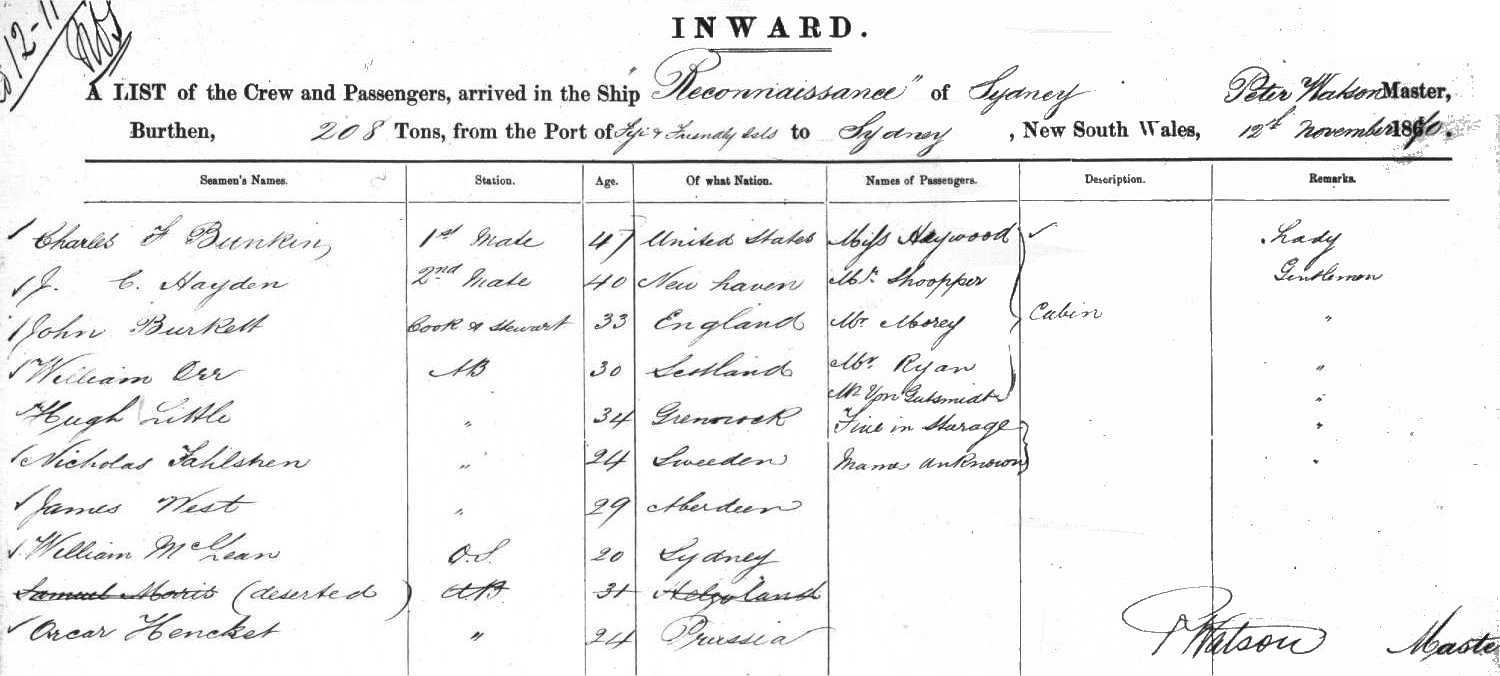 12-11
INWARD.
A LIST of the Crew and Passengers, arrived in the Ship "Reconnaissance" of Sydney Peter Watson Master,
Burthen, 208 Tons, from the Port of Fiji & Friendly Isls to Sydney, New South Wales, 12th November 1870.
Seamen's Names. Station. Age. Of what Nation. Names of Passengers. Description. Remarks.
Charles F Bunkin, 1st Mate 47 United States Miss Haywood Lady
J. C. Hayden 2nd Mate 40 New haven Mr. Shoopper Gentlemen
John Burkett Cook & Stewart 33 England Mr Morey Cabin "
William Orr AB 30 Scotland Mr Ryan "
Mr Von Gutsmidt "
Hugh Little " 34 Grenock Five in Starage "
Nicholas Fahlstren " 24 Sweeden Names unknown "
James West " 29 Aberdeen
William McLean O.S. 20 Sydney
Samuel Morris (deserted) AB 31 Helgoland
Orcar Hencket " 24 Prussia
P Watson Maste